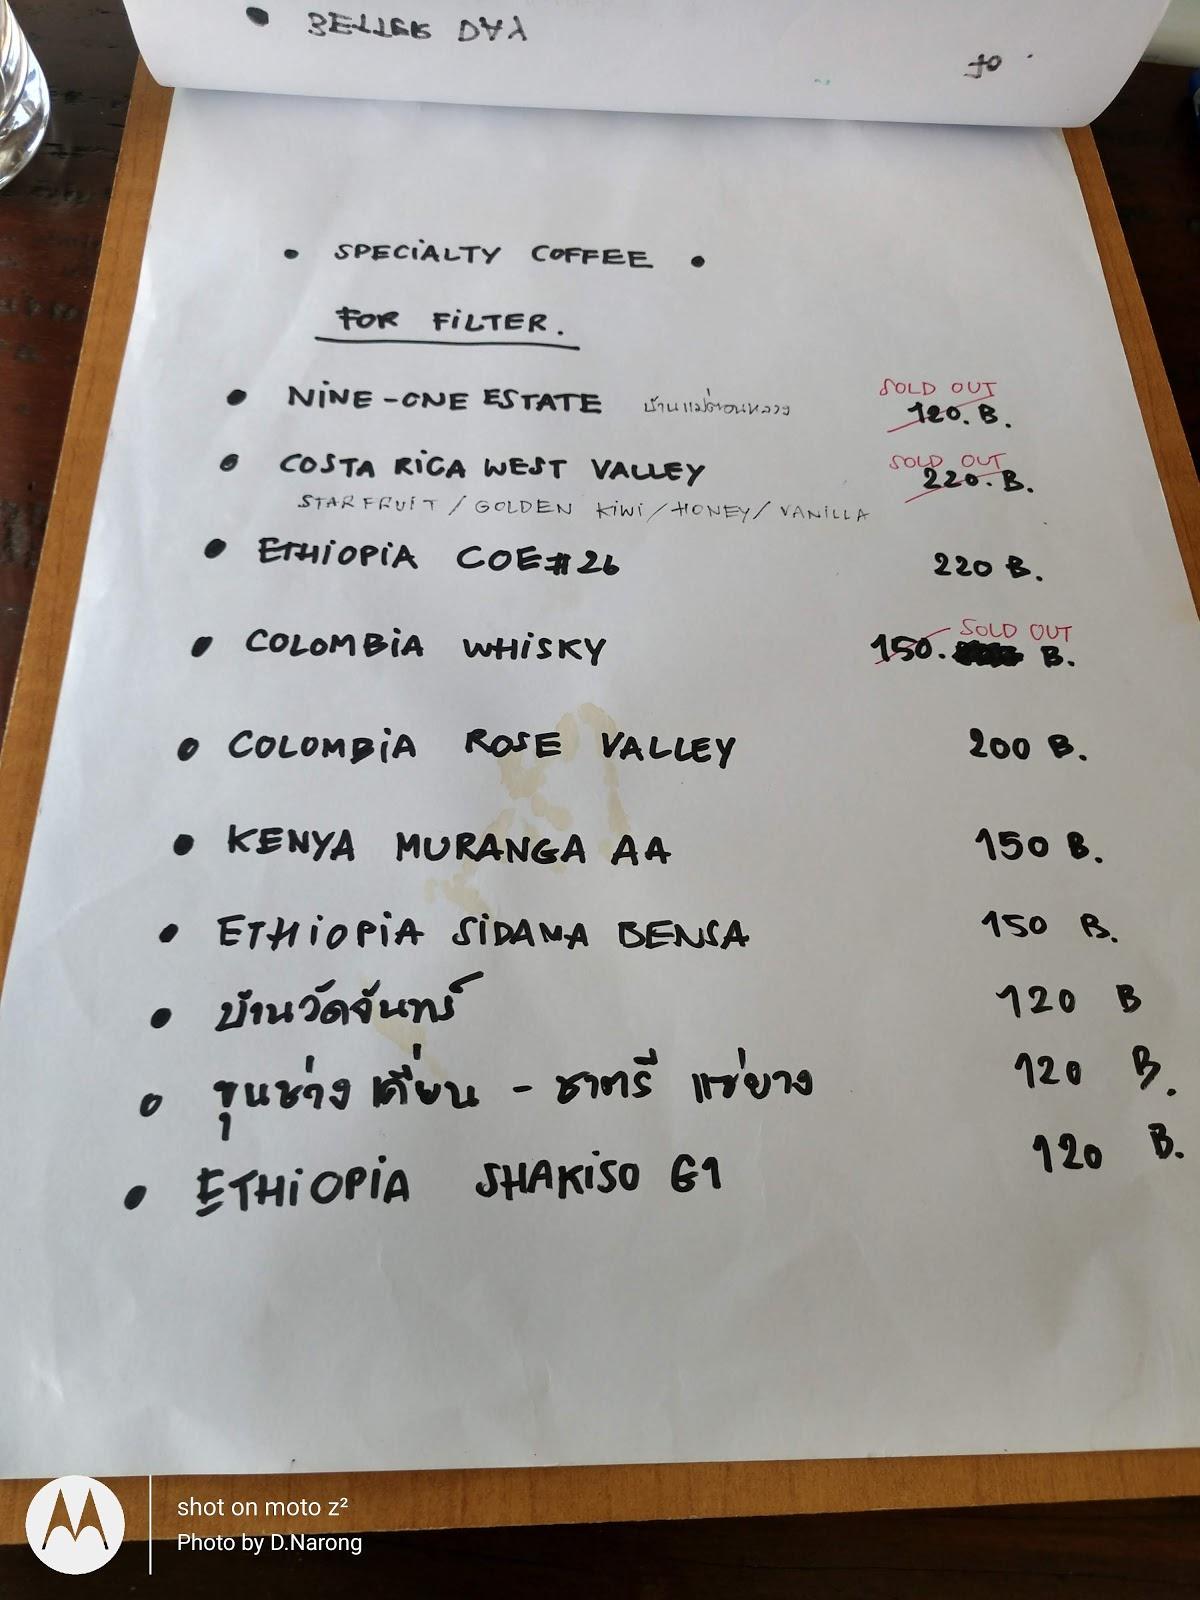 BETTER DAY
• SPECIALTY COFFEE •
FOR FILTER.
• NINE-ONE ESTATE บ้านแม่ตอนหลวง SOLD OUT 120. B.
• COSTA RICA WEST VALLEY SOLD OUT 220. B.
STAR FRUIT / GOLDEN KIWI / HONEY / VANILLA
• ETHIOPIA COE#26 220 B.
• COLOMBIA WHISKY 150. SOLD OUT B.
• COLOMBIA ROSE VALLEY 200 B.
• KENYA MURANGA AA 150 B.
• ETHIOPIA SIDAMA BENSA 150 B.
• บ้านวัดจันทร์ 120 B
• ขุนช่างเคี่ยน - ชาตรี แซ่ยาง 120 B.
• ETHIOPIA SHAKISO G1 120 B.
shot on moto z²
Photo by D.Narong